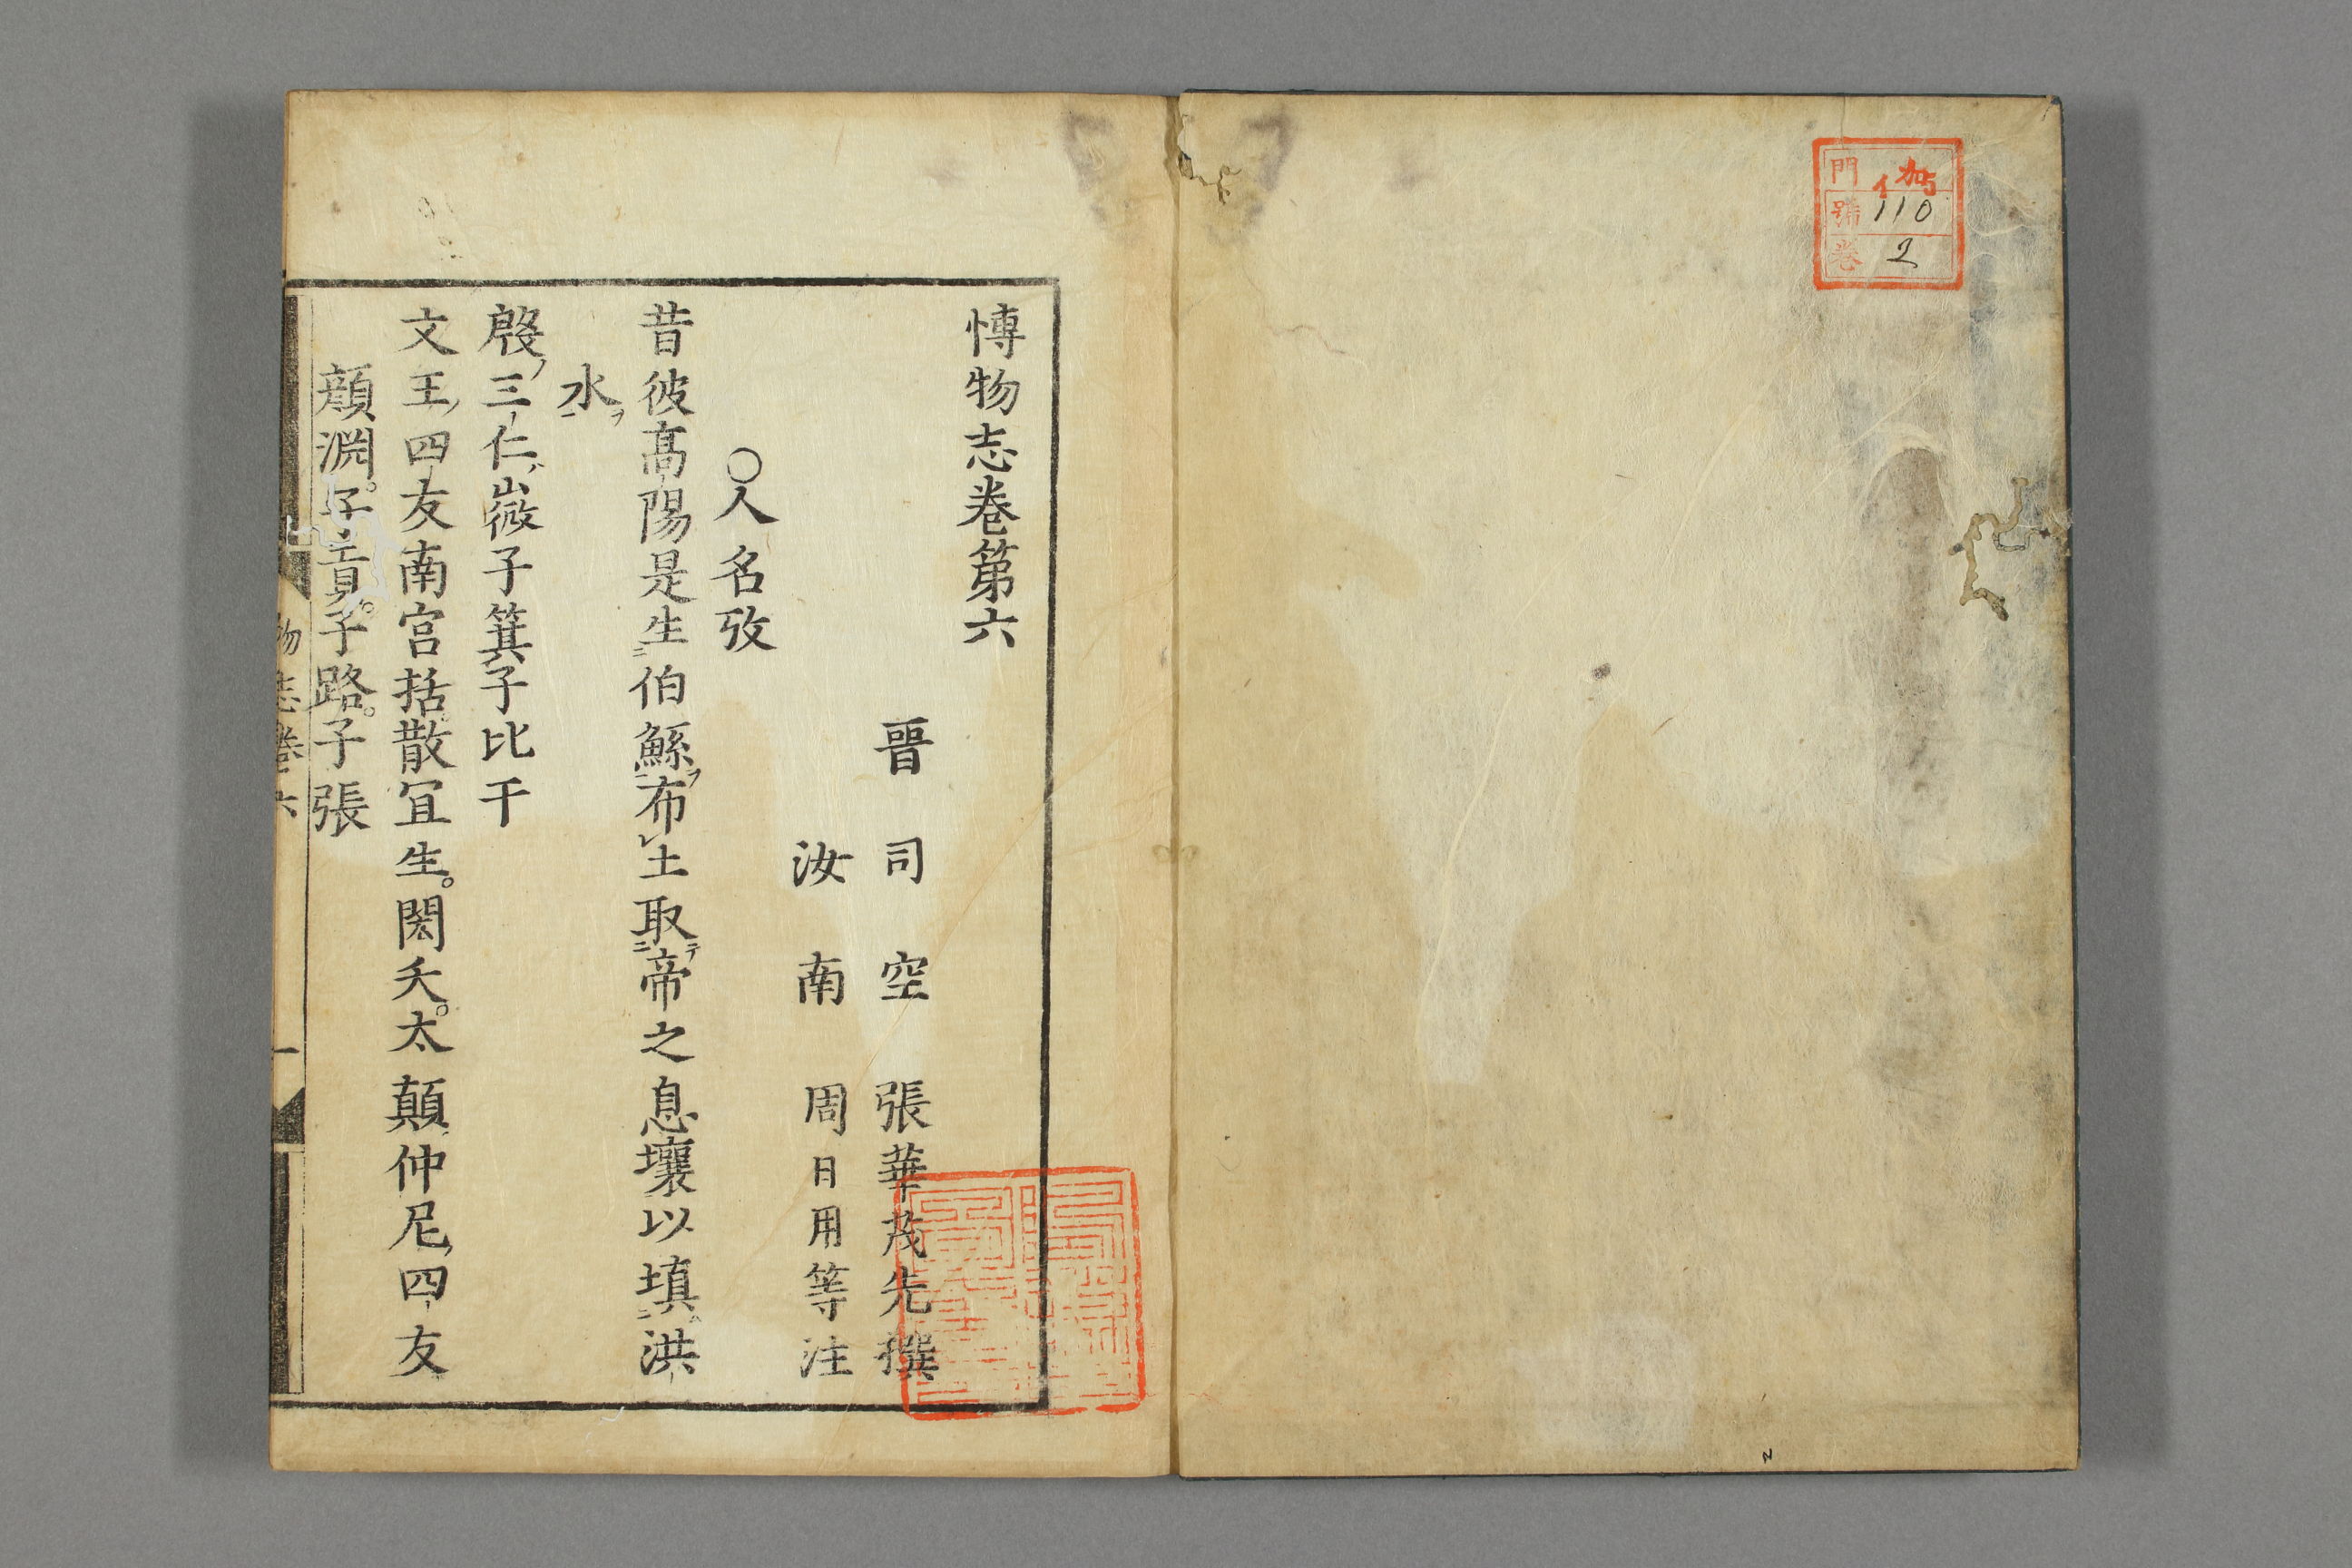 門 伽
號 110
卷 2
愽物志卷第六
晉司空張華茂先撰
汝南周日用等注
○人名攷
昔彼髙陽是生伯鯀布土取帝之息壤以填洪
水
殷三仁微子箕子比干
文王四友南宫括散冝生。閎夭。太顛仲尼四友
顏淵。子貢。子路。子張
物志卷六
一